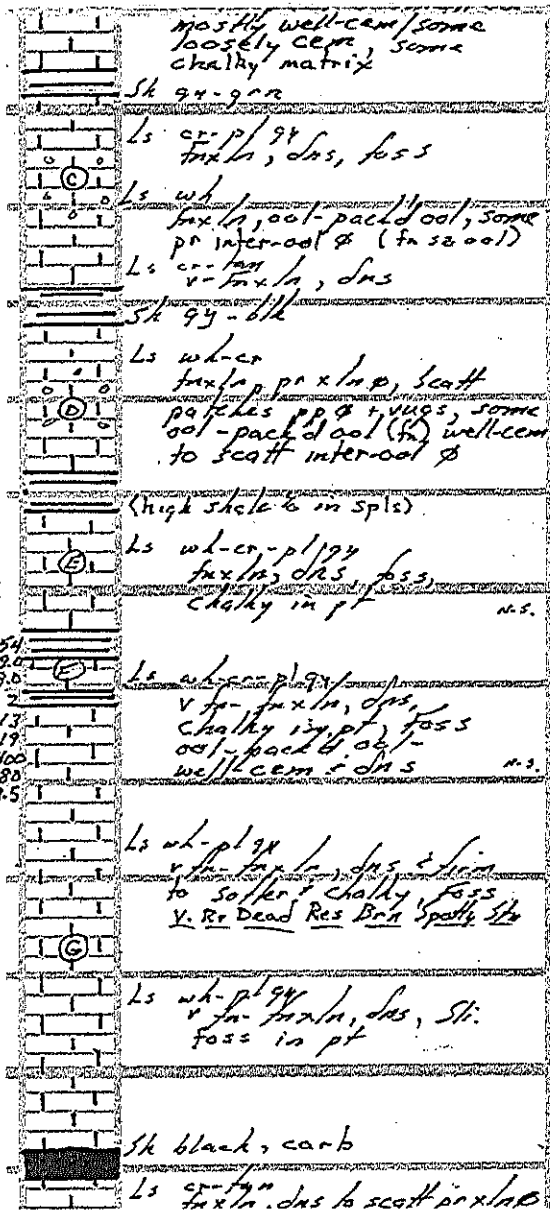 mostly well-cem/some
loosely cem, some
chalky matrix
Sh gy-grn
Ls cr-pl gy
fnxln, dns, foss
C
Ls wh
fnxln, ool-packd ool, some
pr inter-ool ø (fn sz ool)
Ls cr-tan
v-fnxln, dns
Sh gy-blk
Ls wh-cr
fnxln, pr xln ø, scatt
D
patches pp ø + vugs, some
ool-packd ool (fn) well-cem
to scatt inter-ool ø
(high shale % in spls)
Ls wh-cr-pl gy
E
fnxln, dns, foss,
chalky in pt N.S.
54
Ls wh-cr-pl gy
v fn-fnxln, dns,
2
13
chalky in pt, foss
19
ool-packd ool-
well-cem & dns N.S.
Ls wh-pl gy
v fn-fnxln, dns & firm
to softer & chalky, foss
V. Rr Dead Res Brn Spotty Stn
G
Ls wh-pl gy
v fn-fnxln, dns, Sli.
foss in pt
Sh black, carb
Ls cr-tan
fnxln, dns to scatt pr xln ø